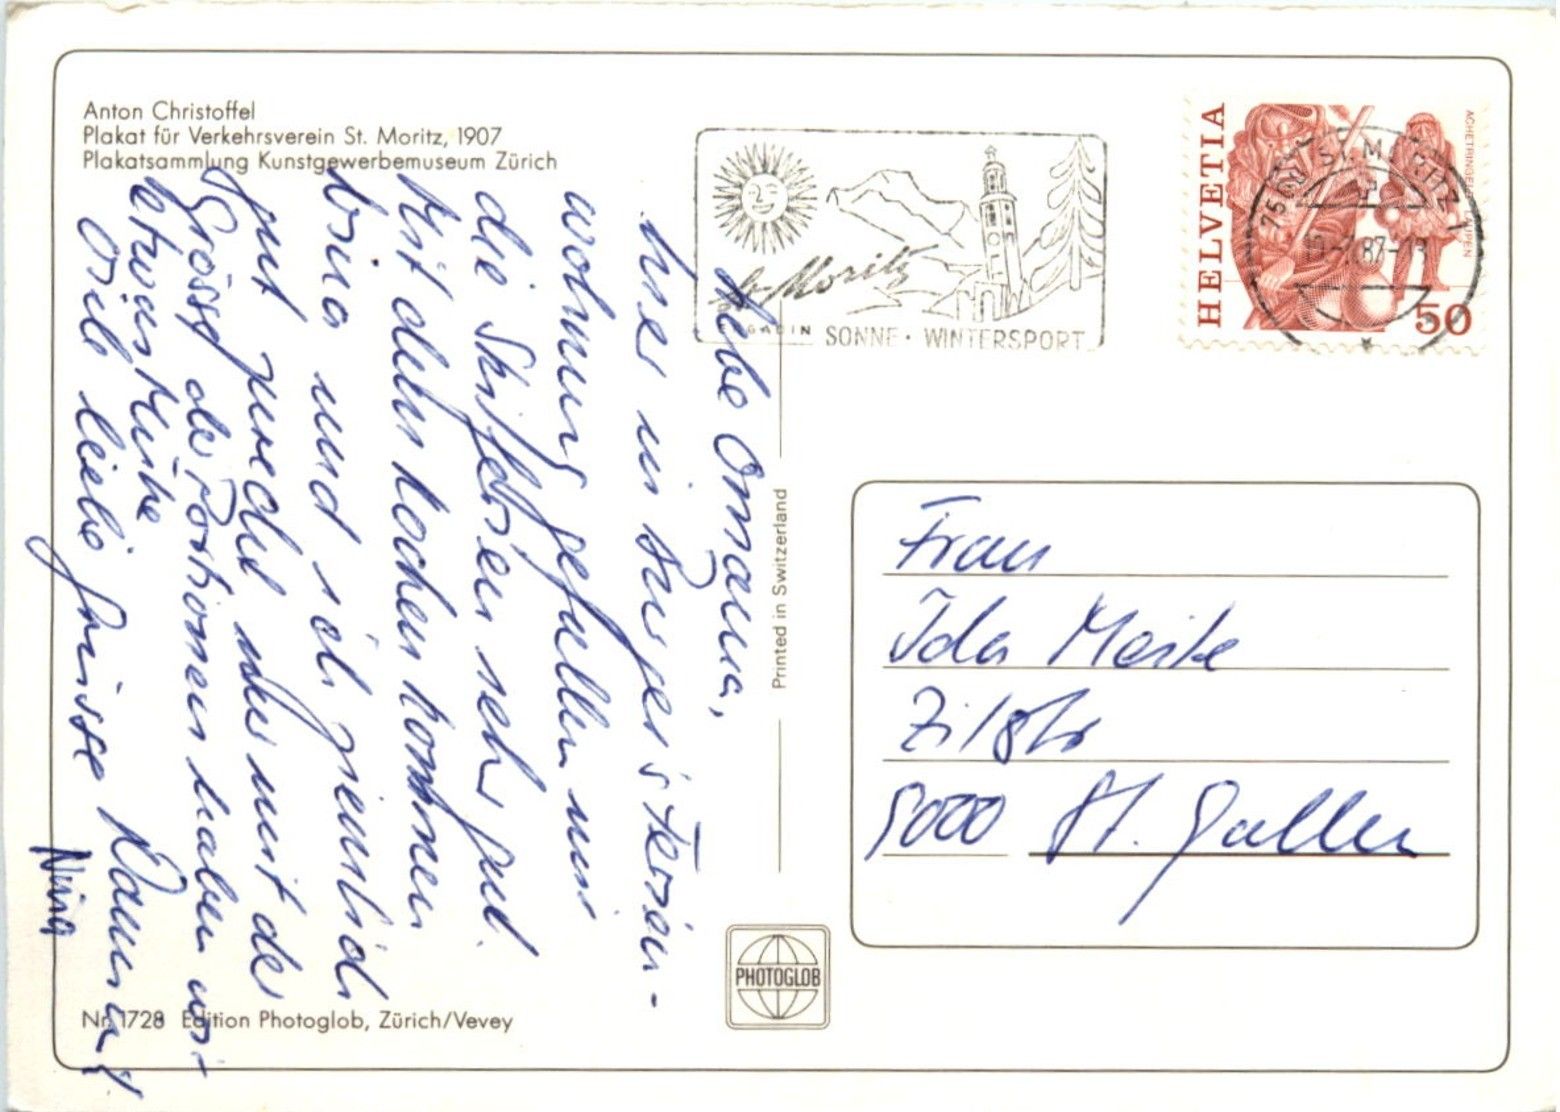 Anton Christoffel
Plakat für Verkehrsverein St. Moritz, 1907
Plakatsammlung Kunstgewerbemuseum Zürich
St. Moritz
ENGADIN SONNE · WINTERSPORT
HELVETIA
ACHETRINGELE LAUPEN
50
7500 ST. MORITZ 1
87
Liebe Omama,
hier in Burgers Ferien-
wohnung gefallen uns
die Skiferien sehr gut.
Mit dem kochen kommen
und ich ziemlich
gut zurecht nur mit der
Grösse der Portionen haben wir
etwas Mühe
Viele liebe Grüsse
Nina
Printed in Switzerland
PHOTOGLOB
Frau
Ida
9000 St. Gallen
Nr. 1728 Edition Photoglob, Zürich/Vevey